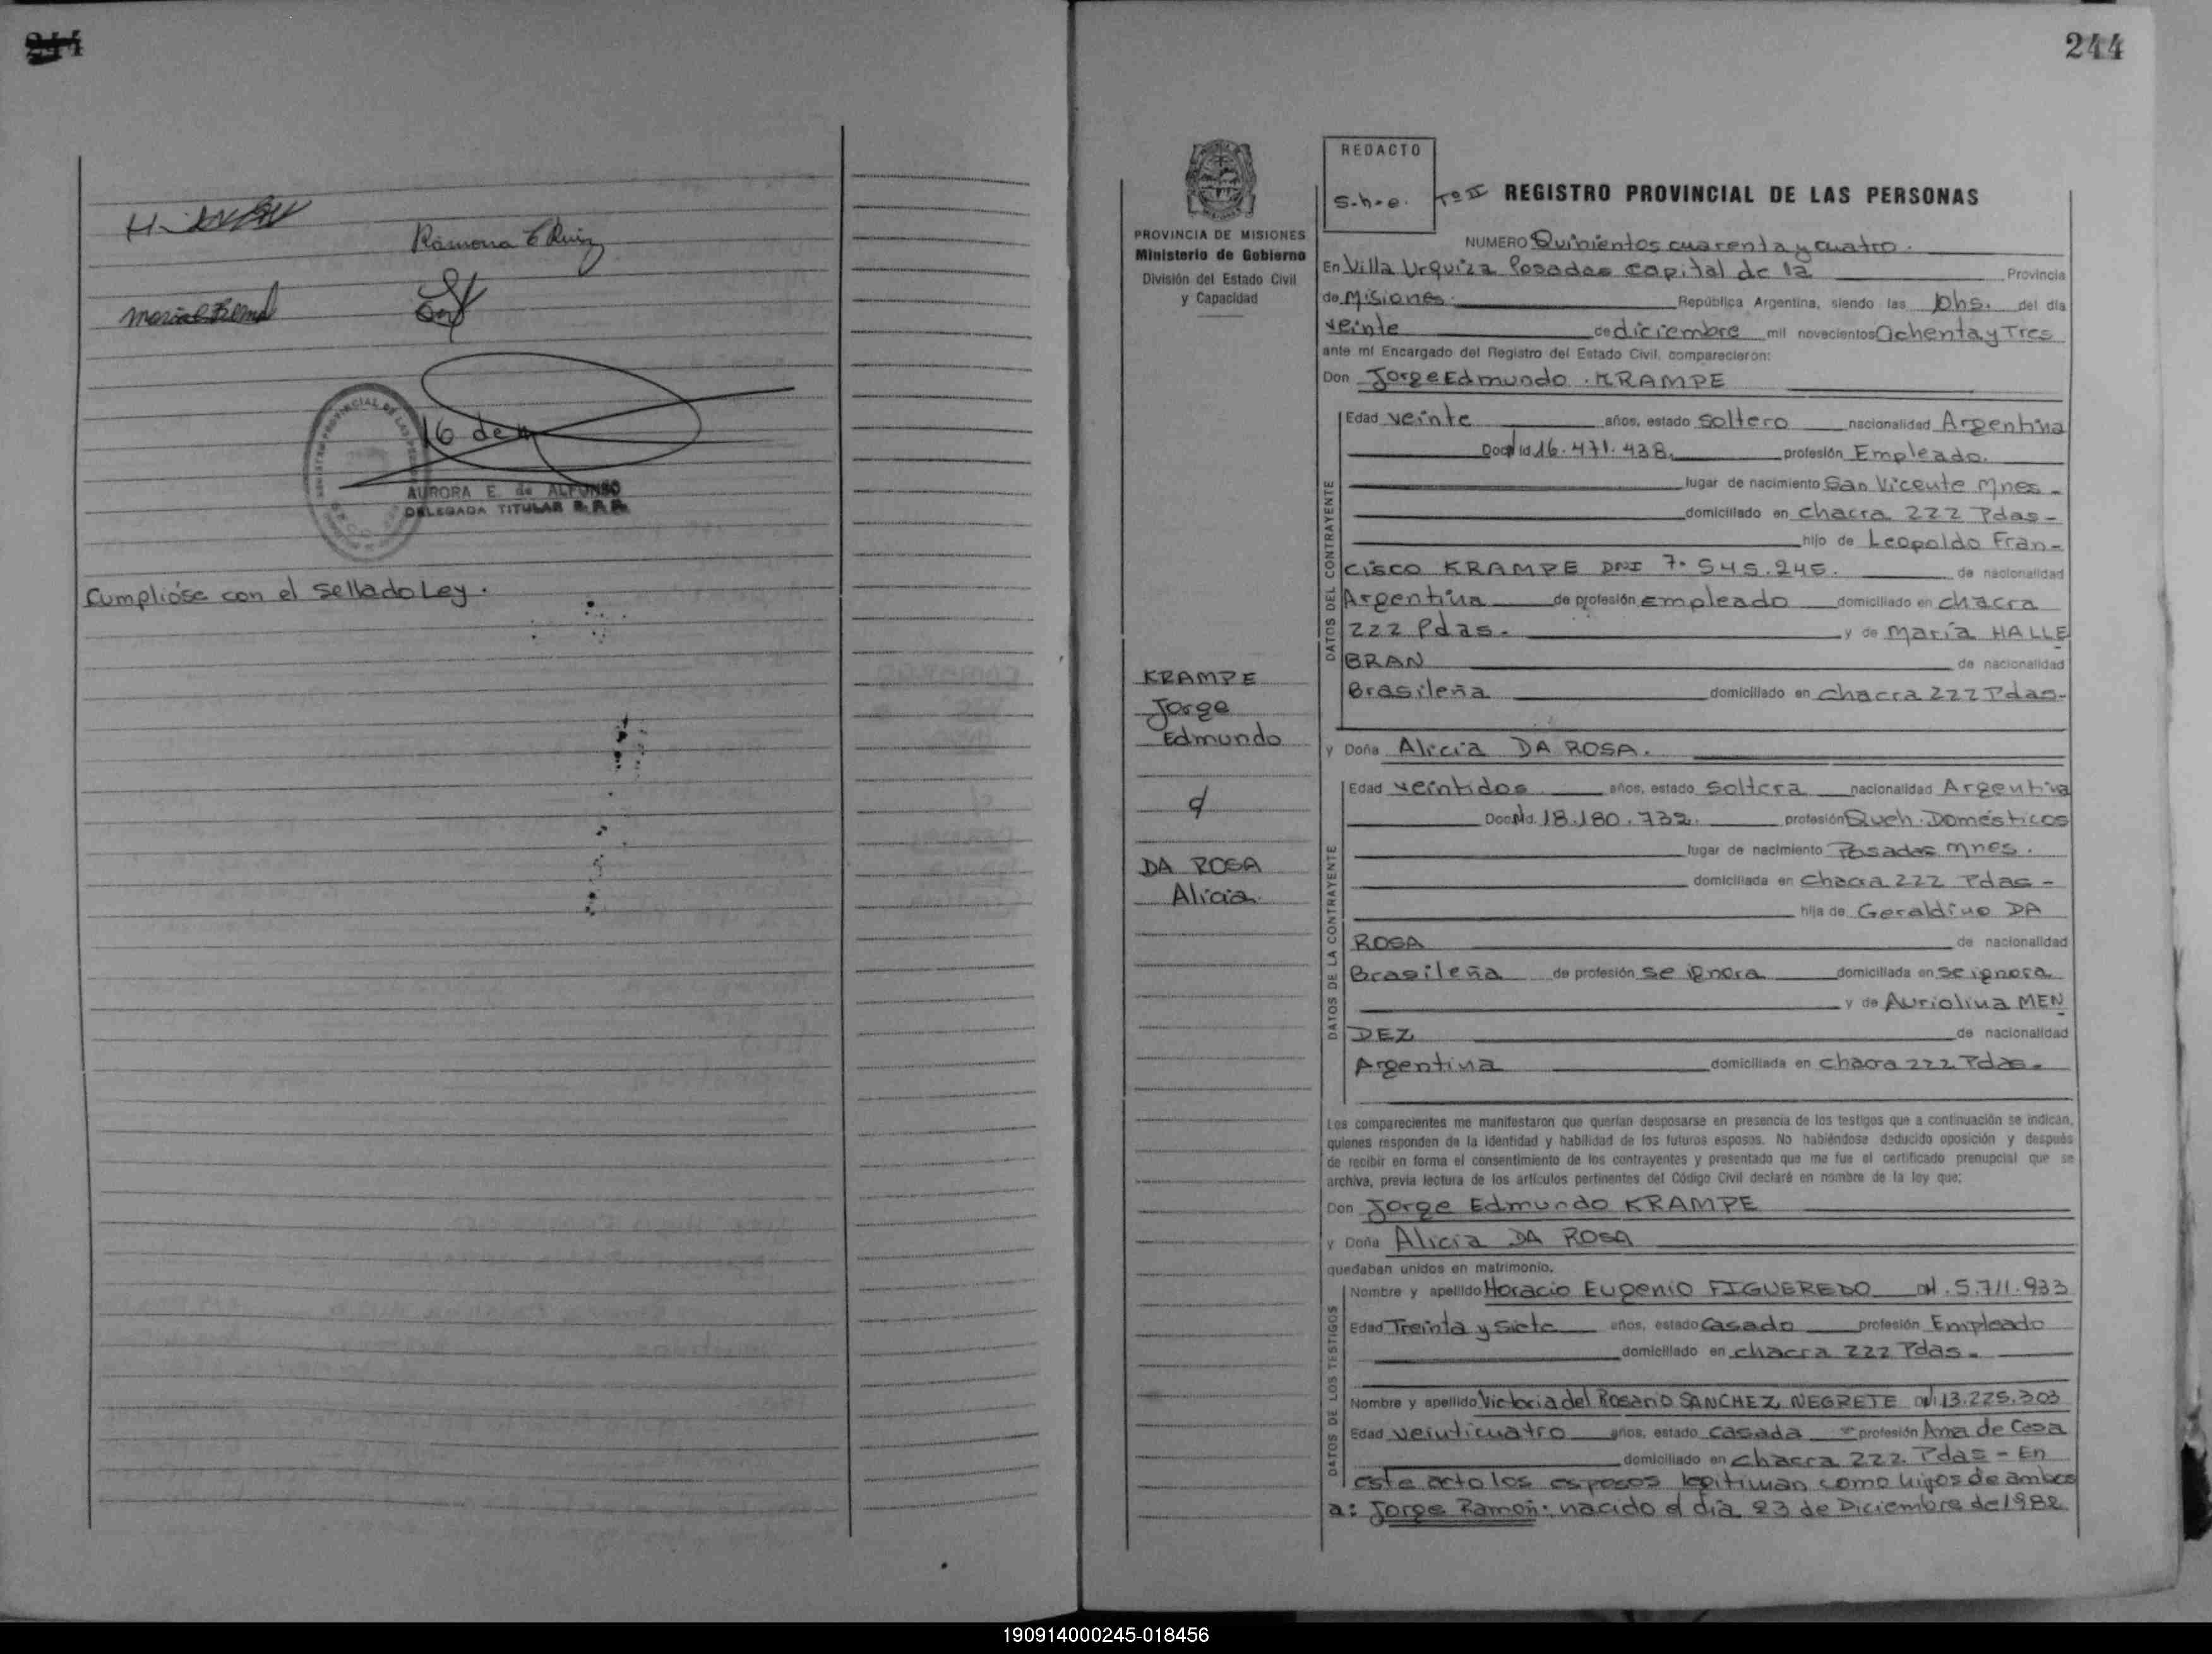 244
Ramona E Ruiz
AURORA E. de ALFONSO
DELEGADA TITULAR R.P.P.
Cumplióse con el sellado Ley.
244
REDACTO
S.h.e.
Tº II REGISTRO PROVINCIAL DE LAS PERSONAS
PROVINCIA DE MISIONES
Ministerio de Gobierno
División del Estado Civil
y Capacidad
NUMERO Quinientos cuarenta y cuatro.
En Villa Urquiza Posadas capital de la Provincia
de Misiones. República Argentina, siendo las 10hs. del día
veinte de diciembre mil novecientos Ochenta y Tres
ante mí Encargado del Registro del Estado Civil, comparecieron:
Don Jorge Edmundo KRAMPE
DATOS DEL CONTRAYENTE
Edad veinte años, estado soltero nacionalidad Argentina
Doc. Id. 16.471.438. profesión Empleado.
lugar de nacimiento San Vicente Mnes.
domiciliado en chacra 222 Pdas-
hijo de Leopoldo Fran-
cisco KRAMPE DNI 7.545.245. de nacionalidad
Argentina de profesión empleado domiciliado en chacra
222 Pdas. y de María HALLE
BRAN de nacionalidad
Brasileña domiciliado en chacra 222 Pdas-
KRAMPE
Jorge
Edmundo
c/
DA ROSA
Alicia.
y Doña Alicia DA ROSA.
DATOS DE LA CONTRAYENTE
Edad veintidos años, estado soltera nacionalidad Argentina
Doc. Id. 18.180.732. profesión Queh. Domésticos
lugar de nacimiento Posadas Mnes.
domiciliada en Chacra 222 Pdas-
hija de Geraldino DA
ROSA de nacionalidad
Brasileña de profesión se ignora domiciliada en se ignora
y de Auriolina MEN
DEZ de nacionalidad
Argentina domiciliada en chacra 222 Pdas.
Los comparecientes me manifestaron que querían desposarse en presencia de los testigos que a continuación se indican,
quienes responden de la identidad y habilidad de los futuros esposos. No habiéndose deducido oposición y después
de recibir en forma el consentimiento de los contrayentes y presentado que me fue el certificado prenupcial que se
archiva, previa lectura de los artículos pertinentes del Código Civil declaré en nombre de la ley que:
Don Jorge Edmundo KRAMPE
y Doña Alicia DA ROSA
quedaban unidos en matrimonio.
DATOS DE LOS TESTIGOS
Nombre y apellido Horacio Eugenio FIGUEREDO DNI. 5.711.933
Edad Treinta y Siete años, estado Casado profesión Empleado
domiciliado en chacra 222 Pdas.
Nombre y apellido Victoria del Rosario SANCHEZ NEGRETE DNI 13.225.303
Edad veinticuatro años, estado casada profesión Ama de Casa
domiciliado en chacra 222 Pdas- En
este acto los esposos legitiman como hijos de ambos
a: Jorge Ramón: nacido el día 23 de Diciembre de 1982
190914000245-018456